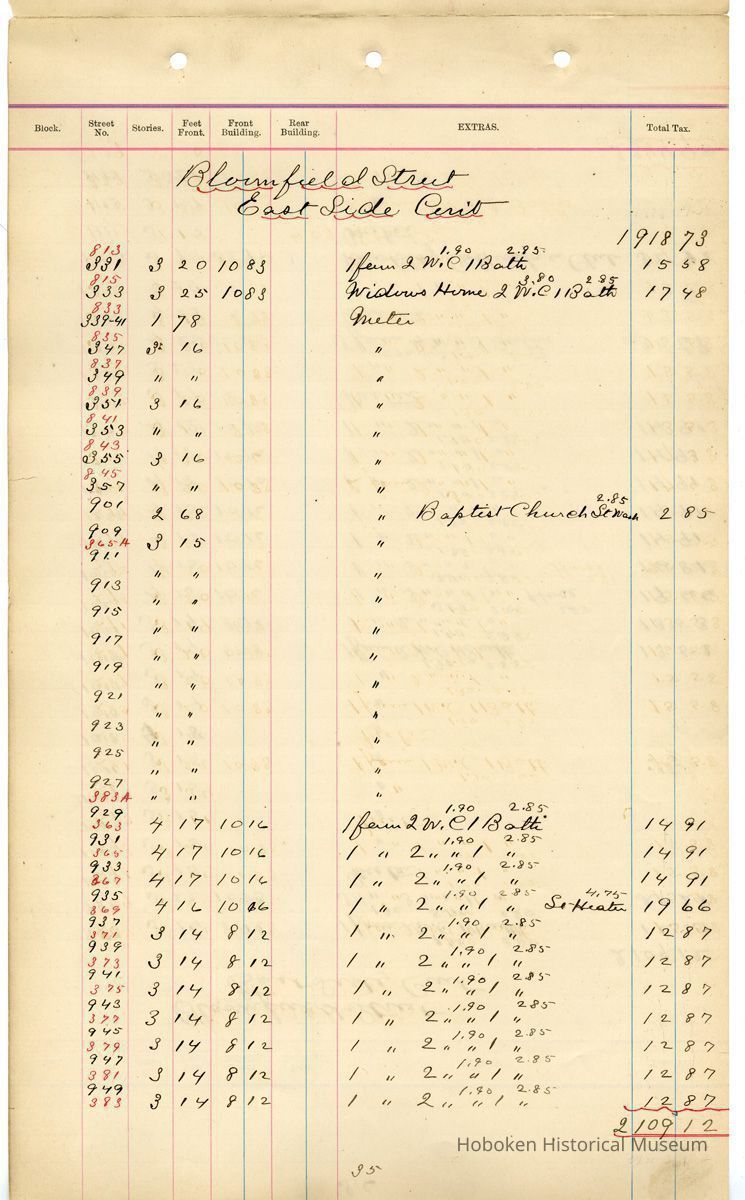 Block. Street No. Stories. Feet Front. Front Building. Rear Building. EXTRAS. Total Tax.
Bloomfield Street
East Side Cont
1918 73
813 1.90 2.85
331 3 20 10 83 1 fam 2 W.C 1 Bath 15 58
815 3.80 2.85
333 3 25 10 83 Widows Home 2 W.C 1 Bath 17 48
833
339-41 1 78 Meter
835
347 3 16 "
837
349 " " "
839
351 3 16 "
841
353 " " "
843
355 3 16 "
845
357 " " "
901 2.85
2 68 " Baptist Church St Wash 2 85
909
365A 3 15 "
911
" " "
913
" " "
915
" " "
917
" " "
919
" " "
921
" " "
923
" " "
925
" " "
927
383A " " "
929 1.90 2.85
363 4 17 10 16 1 fam 2 W.C 1 Bath 14 91
931 1.90 2.85
365 4 17 10 16 1 " 2 " " 1 " 14 91
933 1.90 2.85
367 4 17 10 16 1 " 2 " " 1 " 14 91
935 1.90 2.85 4.75
369 4 16 10 66 1 " 2 " " 1 " St Heater 19 66
937 1.90 2.85
371 3 14 8 12 1 " 2 " " 1 " 12 87
939 1.90 2.85
373 3 14 8 12 1 " 2 " " 1 " 12 87
941 1.90 2.85
375 3 14 8 12 1 " 2 " " 1 " 12 87
943 1.90 2.85
377 3 14 8 12 1 " 2 " " 1 " 12 87
945 1.90 2.85
379 3 14 8 12 1 " 2 " " 1 " 12 87
947 1.90 2.85
381 3 14 8 12 1 " 2 " " 1 " 12 87
949 1.90 2.85
383 3 14 8 12 1 " 2 " " 1 " 12 87
2109 12
Hoboken Historical Museum
35